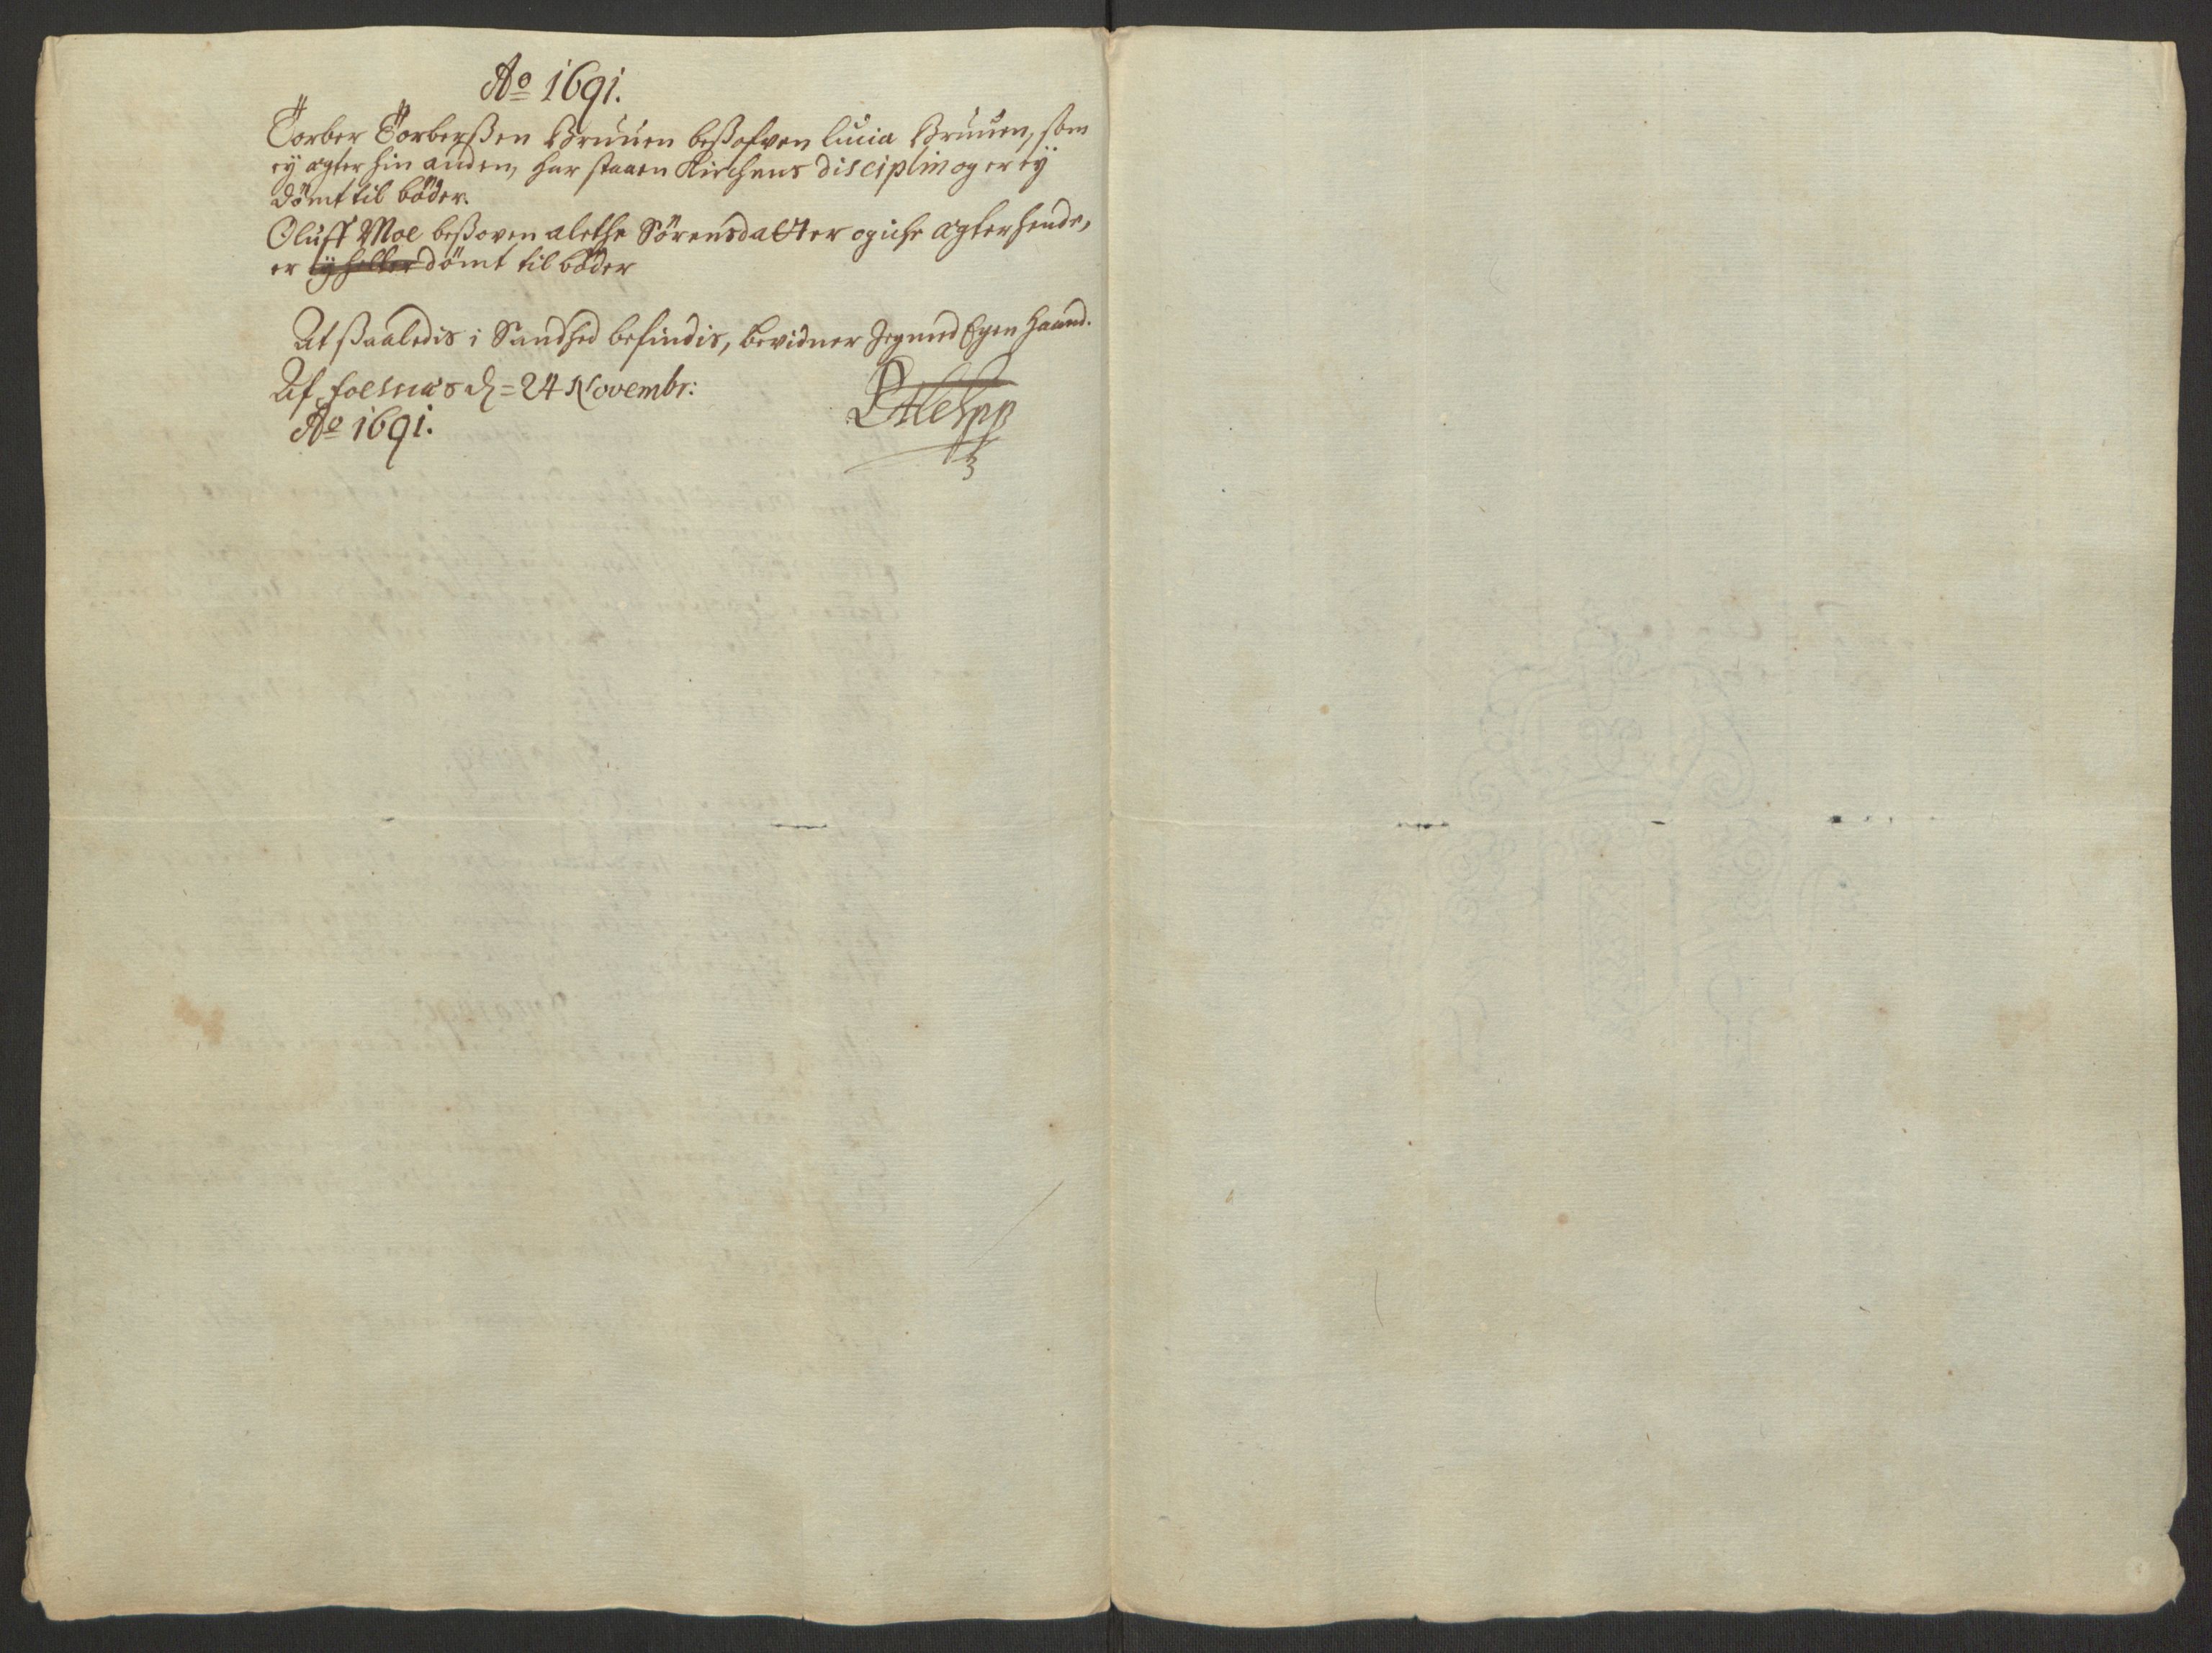 Ao 1691.
Torber Torberßen Bruuen beßofven Lucia Bruuen, som
ey agter hin anden, har staaen Kirchens disciplin og er ey
dömt til böder.
Oluff Moe beßoven alethe Sörensdatter og iche agter hende,
er ey heller dömt til böder
At ßaaledis i Sandhed befindis, bevidner Jeg med Egen haand.
Af foesnæs d. = 24 Novembr:
Ao 1691.